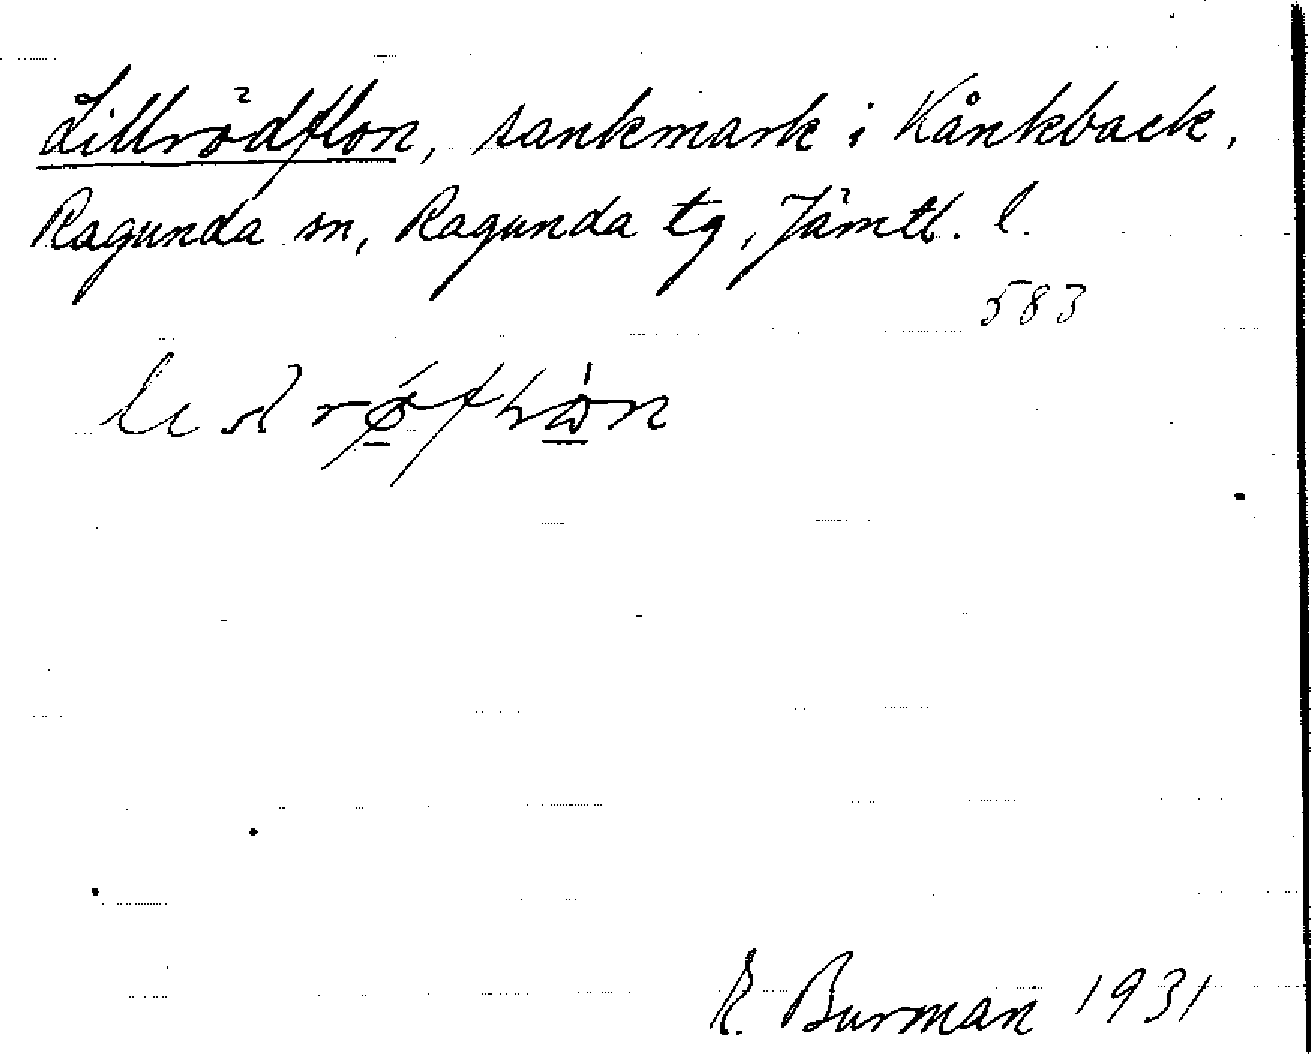 Lillrödflon, sankmark i Kånkback,
Ragunda sn, Ragunda tg, Jämtl. l.
583
R. Burman 1931